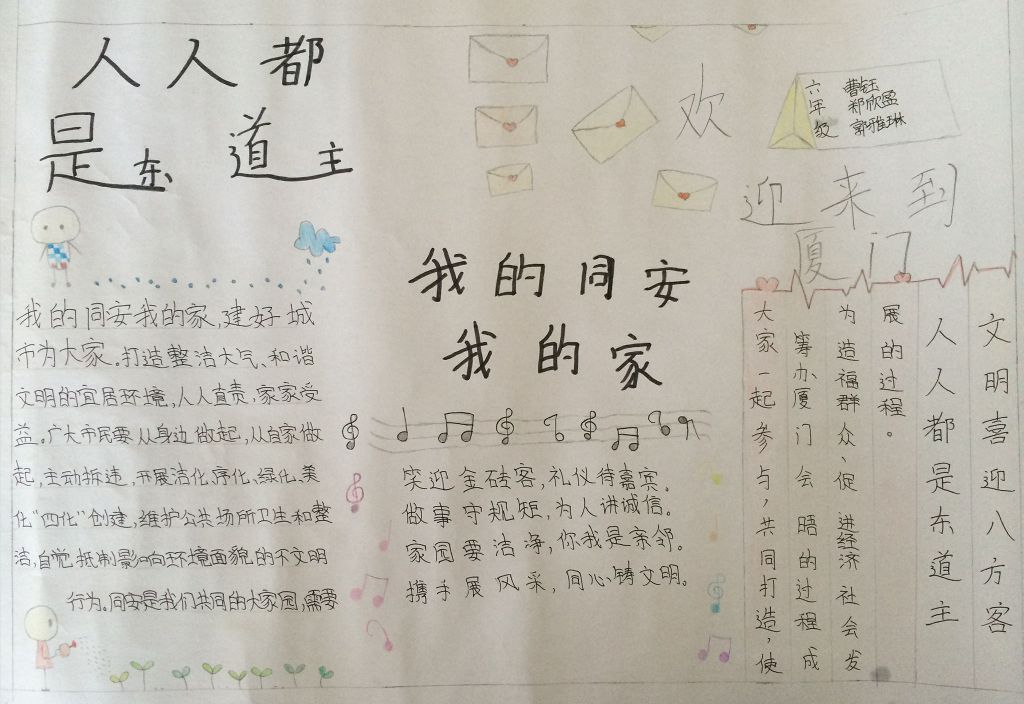 人人都
是东道主
我的同安我的家,建好城
市为大家。打造整洁大气、和谐
文明的宜居环境,人人直责,家家受
益。广大市民要从身边做起,从自家做
起,主动拆违,开展洁化、序化、绿化、美
化“四化”创建,维护公共场所卫生和整
洁,自觉抵制影响环境面貌的不文明
行为。同安是我们共同的大家园,需要
我的同安
我的家
笑迎金砖客,礼仪待嘉宾。
做事守规短,为人讲诚信。
家园要洁净,你我是亲邻。
携手展风采,同心铸文明。
六年级
曹钰
郑欣盈
郭雅琳
欢
迎来到
厦门
大家一起参与,共同打造,使
筹办厦门会晤的过程成
为造福群众、促进经济社会发
展的过程。
文明喜迎八方客
人人都是东道主